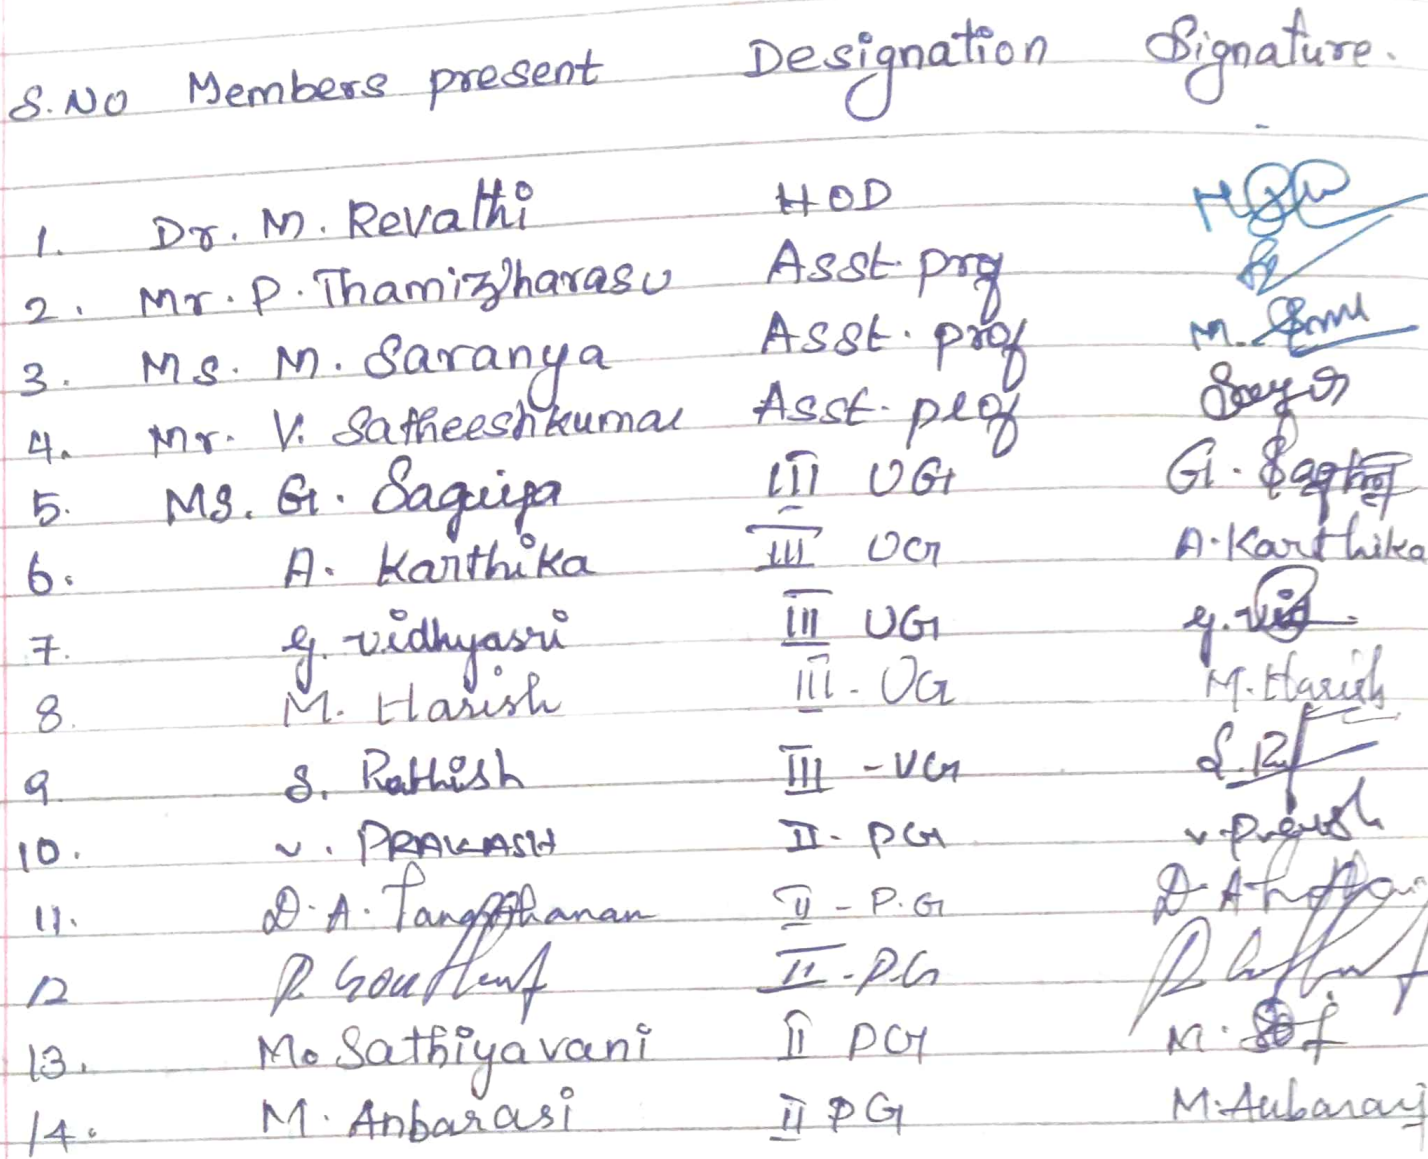 S.No Members present Designation Signature.
1. Dr. M. Revathi HOD
2. Mr. P. Thamizharasu Asst. prof
3. Ms. M. Saranya Asst. prof M.
4. Mr. V. Satheeshkumar Asst. prof
5. Ms. G. III UG G.
6. A. Karthika III UG A. Karthika
7. G. Vidhyasri III UG G. Vid
8. M. Harish III - UG M. Harish
9. S. Rathish III - UG S. R
10. V. PRAKASH II - PG V. Prakash
11. D. A. II - P.G D. A
12 P. II - PG P.
13. M. Sathiyavani II PG M.
14. M. Anbarasi II PG M. Anbarasi